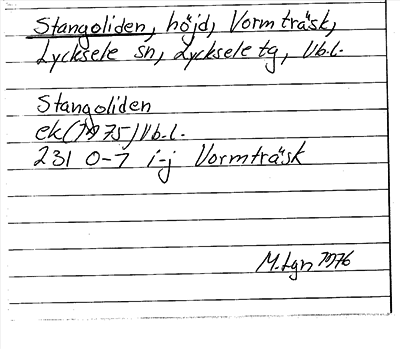 Stangoliden, höjd, Vormträsk,
Lycksele sn, Lycksele tg, Vb.l.
Stangoliden
ek (1975) Vb.l.
231 0-7 i-j Vormträsk
M. Lgn 1976